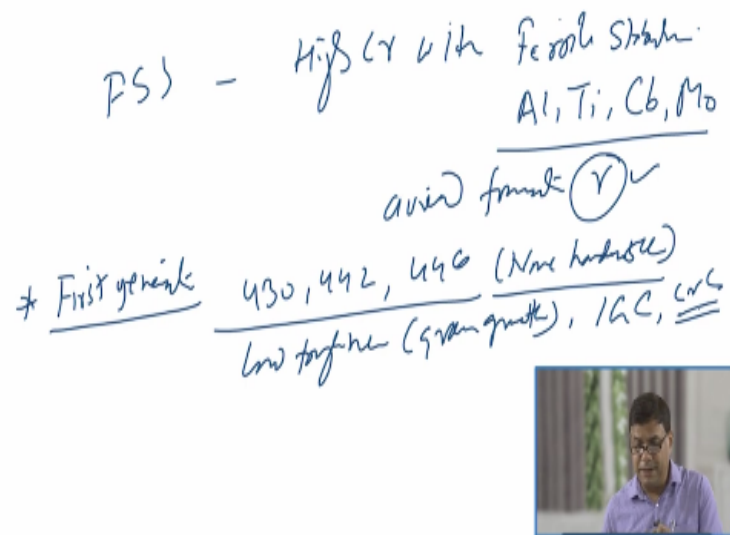 FSS - High Cr with Ferrite Stabilizer
Al, Ti, Cb, Mo
avoid formation γ ✓
* First generation 430, 442, 446 (Non hardenable)
low toughness (grain growth), IGC,